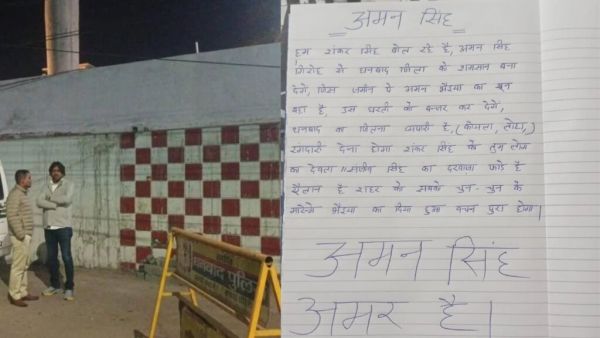 अमन सिंह
हम शंकर सिंह बोल रहे है, अमन सिंह
गिरोह से धनबाद जिला के शमसान बना
देगें, जिस जमीन पे अमन भैइया का खून
बहा है, उस धरती को बन्जर कर देगें,
धनबाद का जितना व्यापारी है, (कोयला, लोहा,)
रंगदारी देना होगा शंकर सिंह को तुम लोग
का देवता संजीव सिंह का दरवाजा फाड़े है
ऐलान है शहर के सबके चुन-चुन के
मारेंगे भैइया का दिया हुआ वचन पुरा होगा।
अमन सिंह
अमर है।
धनबाद पुलिस